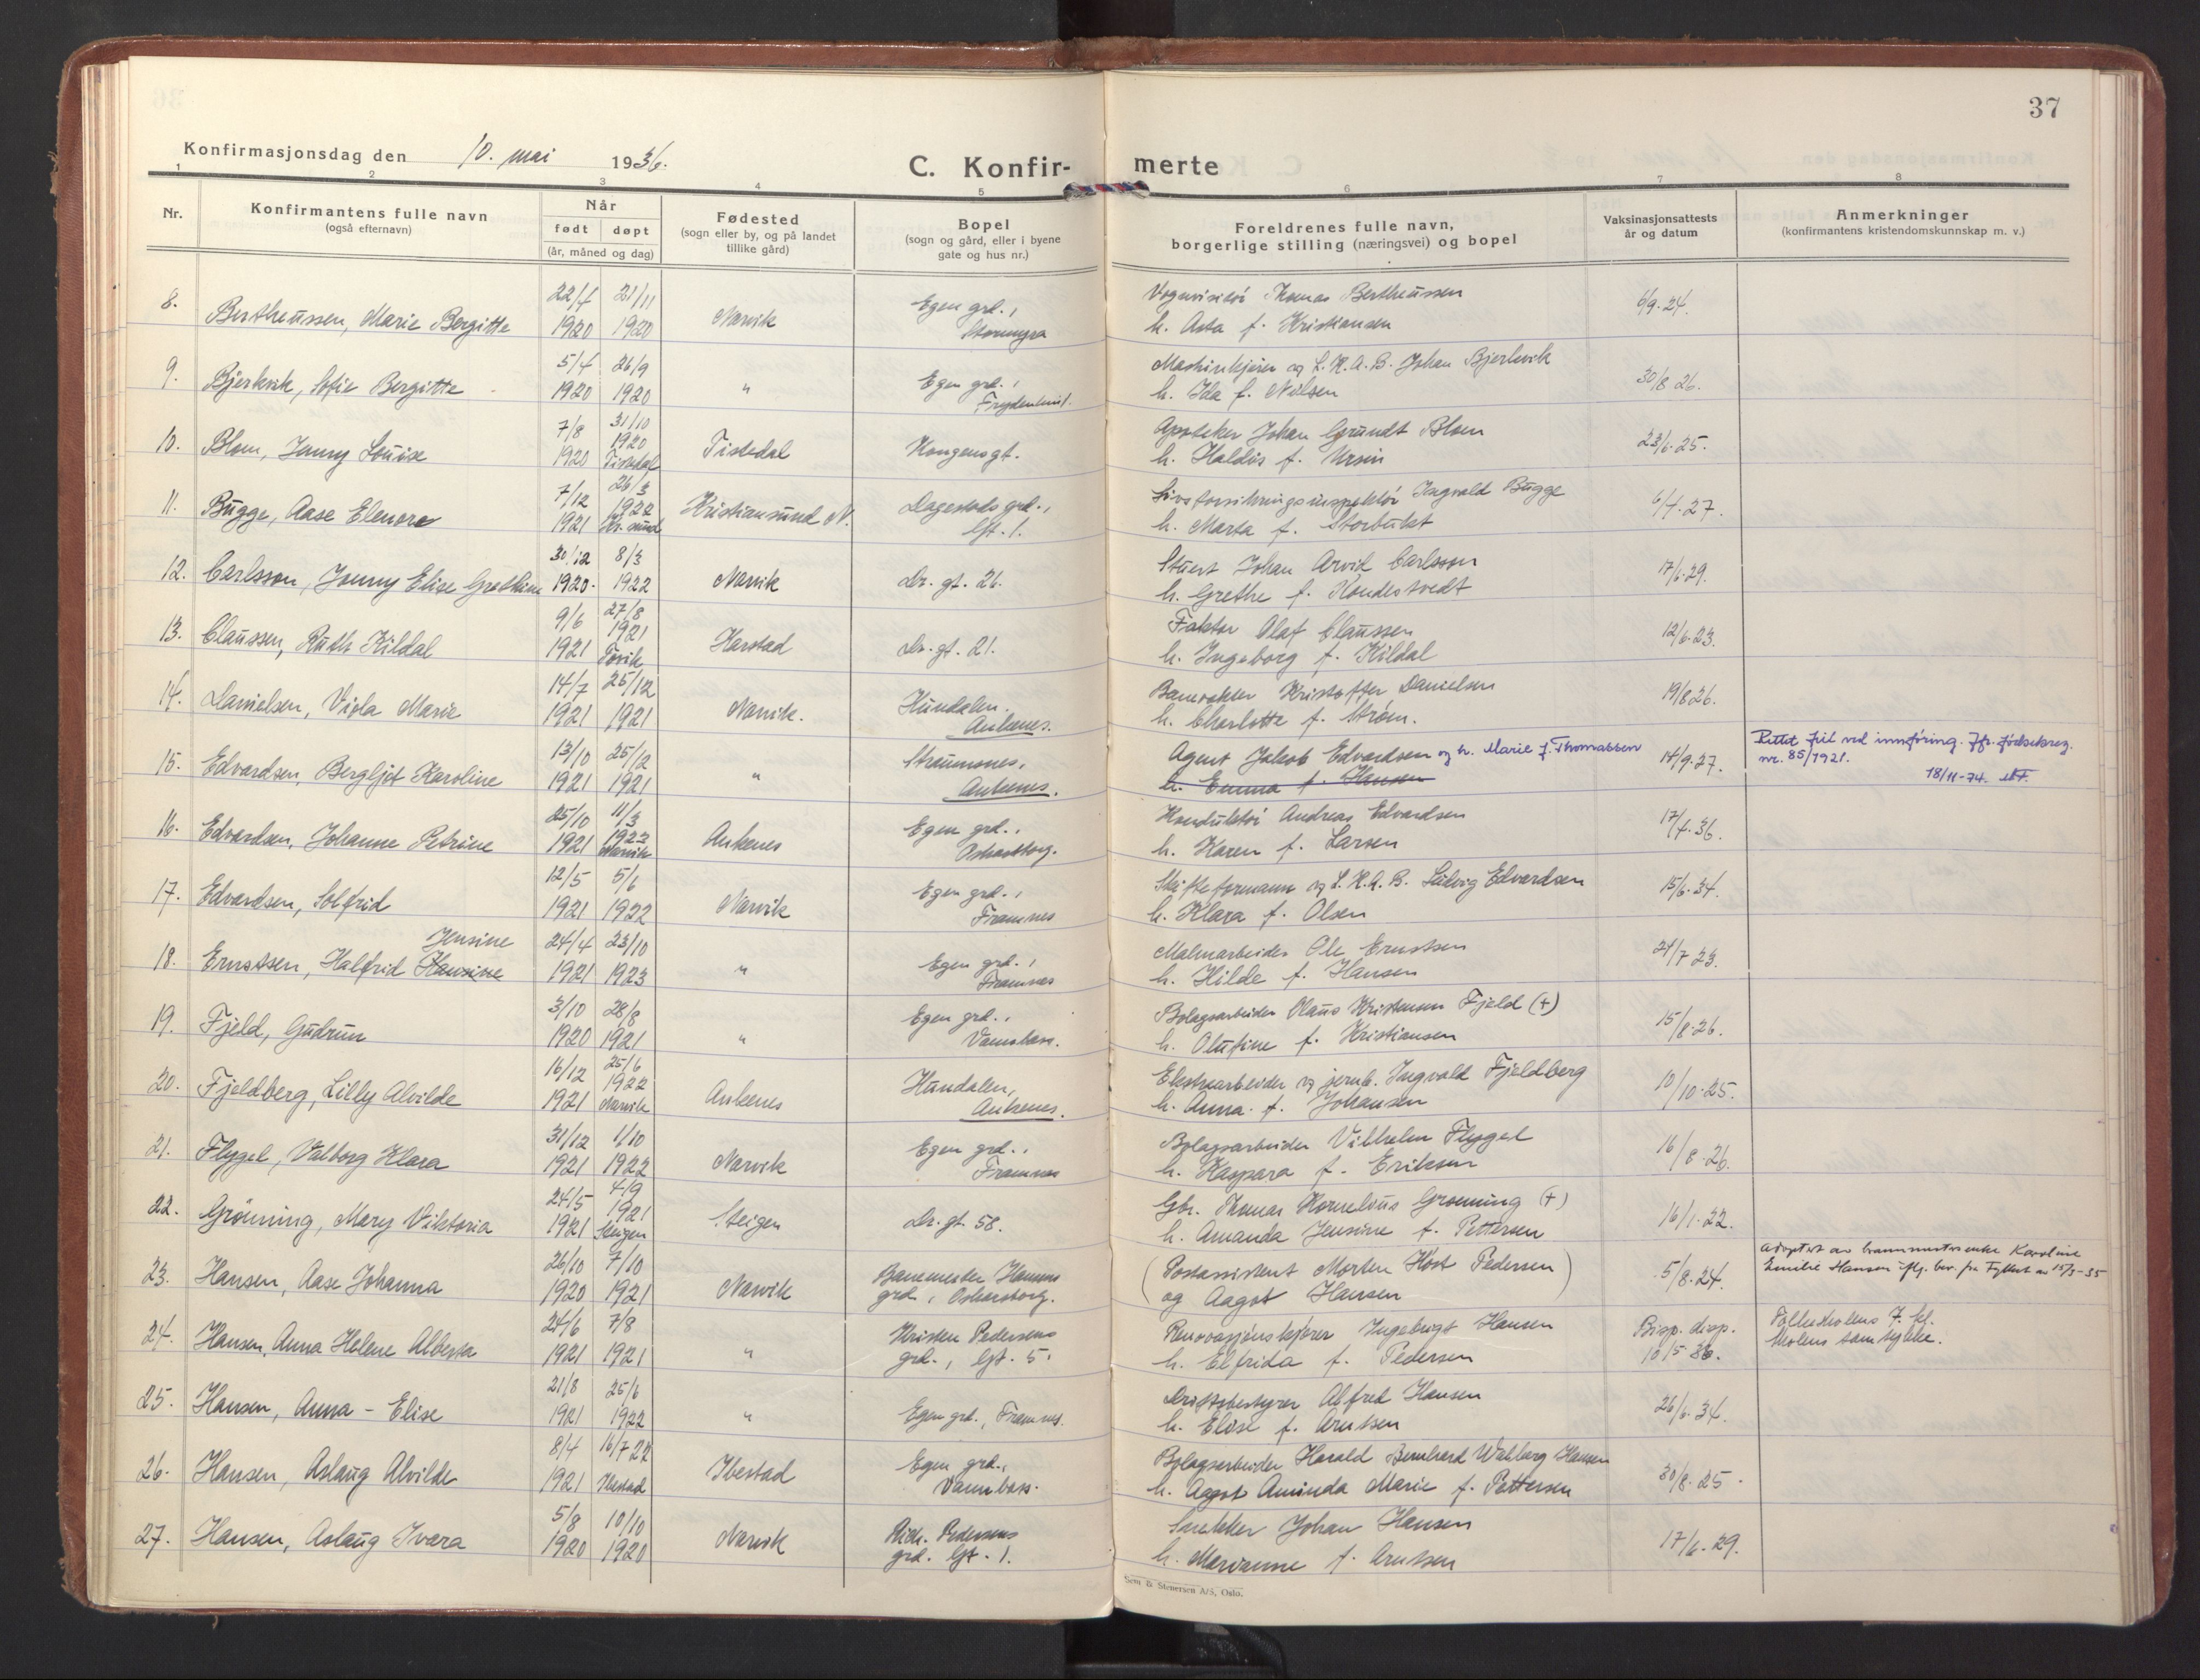 37
Konfirmasjonsdag den 10. mai 1936.
C. Konfir-merte
1 2 3 4 5 6 7 8
Nr.
Konfirmantens fulle navn
(også efternavn)
Når
født døpt
(år, måned og dag)
Fødested
(sogn eller by, og på landet
tillike gård)
Bopel
(sogn og gård, eller i byene
gate og hus nr.)
Foreldrenes fulle navn,
borgerlige stilling (næringsvei) og bopel
Vaksinasjonsattests
år og datum
Anmerkninger
(konfirmantens kristendomskunnskap m. v.)
8. 22/4 21/11 Egen grd., Vognvisitør Thomas Bertheussen 6/9.24.
Bertheussen, Marie Bergitte 1920 1920 Narvik h. Asta f. Kristiansen
9. 5/4 26/9 Egen grd., Maskinkjører og L.K.A.B. Johan Bjerkvik 30/8 26.
Bjerkvik, Sofie Bergitte 1920 1920 " Frydenlund. h. Ida f. Nilsen
10. 7/8 31/10 1920 Apoteker Johan Grundt Blom 23/6.25.
Blom, Jenny Louise 1920 Tistedal Tistedal Kongensgt. h. Haldis f. Ursin
11. 7/12 26/3 1922 Kristiansund N. Dagestads grd., Livsforsikringsinspektør Ingvald Bugge 6/4.27.
Bugge, Aase Elenore 1921 Kr.sund h. Marta f. Storbukt
12. 30/12 8/3 Stuert Johan Arvid Carlsson 17/6.29.
Carlsson, Jenny Elise Grethine 1920. 1922 Narvik Dr. gt. 26. h. Grethe f.
13. 9/6 27/8 1921 Faktor Olaf Claussen 12/6.23.
Claussen, Ruth Kildal 1921 Harstad Dr. gt. 21. h. Ingeborg f. Kildal
14. 14/7 25/12 Hundalen. Banevokter Kristoffer Danielsen 19/8 26.
Danielsen, Viola Marie 1921 1921 Narvik. Ankenes. h. Charlotte f. Strøm.
15. 13/10 25/12 Straumsnes, Agent Jakob Edvardsen og h. Marie f. Thomassen 14/9.27. Rettet feil ved innføring. Jfr. fødselsreg.
nr. 85/1921.
Edvardsen, Bergljot Karoline 1921 1921 " Ankenes. h. Emma f. Hansen 18/11-74.
16. 25/10 11/3 1922 Egen grd., Konduktør Andreas Edvardsen 17/4.36.
Edvardsen, Johanne Petrine 1921 Narvik Ankenes Oskarsborg. h. Karen f. Larsen
17. 12/5 5/6 Egen grd., Skifteformann og L.K.A.B. Ludvig Edvardsen 15/6.34.
Edvardsen, Solfrid 1921 1922 Narvik Framnes h. Klara f. Olsen
18. Jensine 24/4 23/10 Egen grd., Malmarbeider Ole Ernstsen 24/7 23.
Ernstsen, Halfrid Hansine 1921 1923 " Framnes h. Hilde f. Hansen
19. 3/10 28/8 Egen grd., Bolagsarbeider Olaus Kristensen Fjeld (+) 15/8.26.
Fjeld, Gudrun 1920 1921 " Vannbass. h. Olufine f. Kristiansen
20. 16/12 25/6 1922 Hundalen, Ekstraarbeider og jernb. Ingvald Fjeldberg 10/10.25.
Fjeldberg, Lilly Alvilde 1921 Narvik Ankenes Ankenes. h. Anna. f. Johansen
21. 31/12 1/10 Egen grd., Bolagsarbeider Vilhelm Flygel 16/8.26.
Flygel, Valborg Klara 1921 1922 Narvik Framnes h. Kaspara f. Eriksen
22. 24/5 4/9 1921 Gbr. Thomas Kornelius Grønning (+) 16/1.22.
Grønning, Mary Viktoria 1921 Steigen Steigen Dr. gt. 58. h. Amanda Jensine f. Pettersen
23. 26/10 7/10 Banemester Hansens (Postassistent Morten Høst Pedersen) 5/8.24. Adoptert av banemesterenke Karoline
Hansen, Aase Johanna 1920 1921 Narvik grd., Oskarsborg. og Aagot Hansen Emilie Hansen iflg. bev. fra Fylket av 15/3-35
24. 24/6 7/8 Kristen Pedersens Renovasjonskjører Ingebrigt Hansen Bisp. disp. Folkeskolens 7. kl.
Hansen, Anna Helene Alberta 1921 1921 " grd., Gt. 5. h. Elfrida f. Pedersen 10/5 36. Skolens samtykke.
25. 21/8 25/6 Driftsbestyrer Alfred Hansen 26/6.34.
Hansen, Anna - Elise 1921 1922 " Egen grd., Framnes. h. Elise f. Arntsen
26. 8/4 16/7 22 Egen grd., Bolagsarbeider Harald Bernhard Wahlberg Hansen 30/8.25.
Hansen, Aslaug Alvilde 1921 Ibestad Ibestad Vannbass. h. Aagot Aminda Marie f. Pettersen
27. 5/8 10/10 Rich. Pedersens Snekker Johan Hansen 17/6.29.
Hansen, Aslaug Ivara 1920 1920 Narvik grd. Gt. 1. h. Marianne f. Arntsen
Sem & Stenersen A/S, Oslo.